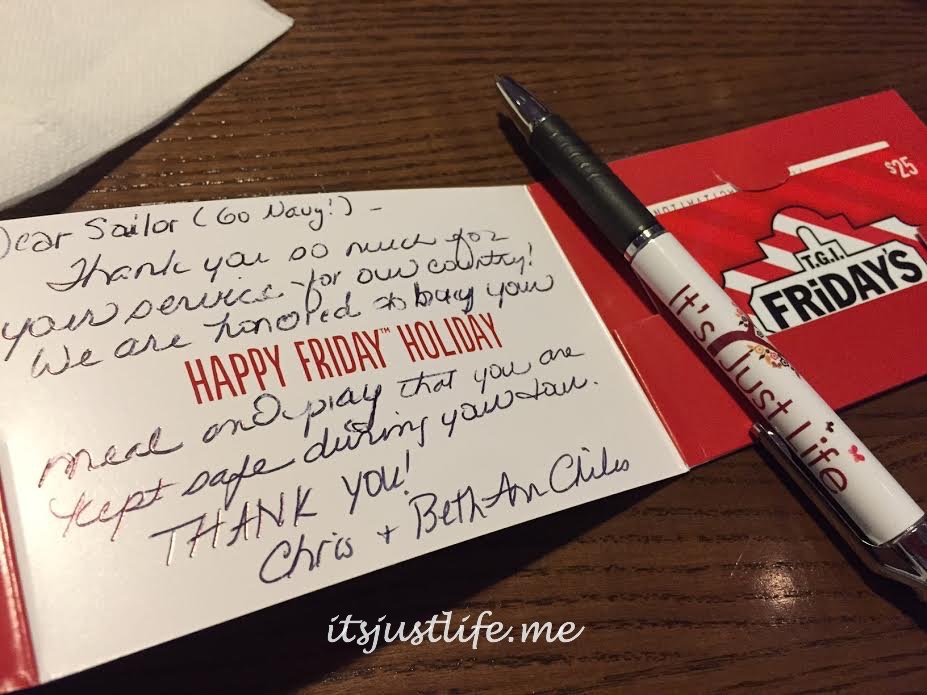 Dear Sailor (Go Navy!) -
Thank you so much for
your service for our country!
We are honored to buy your
HAPPY FRIDAY™ HOLIDAY
meal and pray that you are
kept safe during your tour.
THANK YOU!
Chris + BethAnn Chiles
$25
T.G.I.
FRiDAY'S
It's Just Life
itsjustlife.me